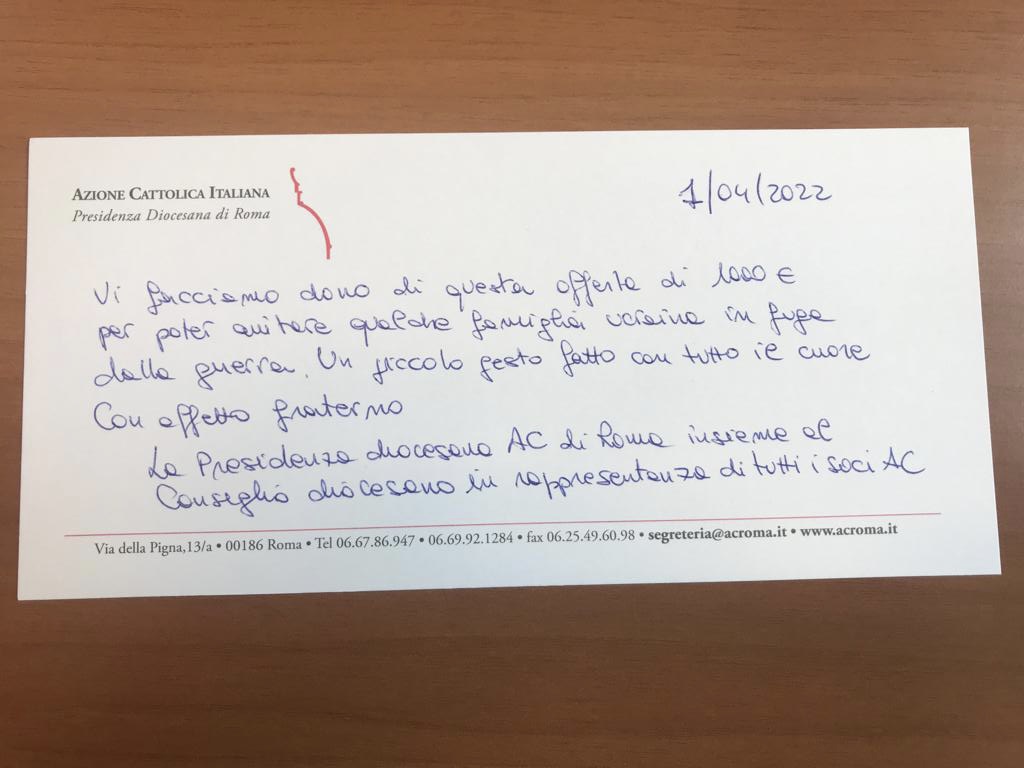 AZIONE CATTOLICA ITALIANA
Presidenza Diocesana di Roma
1/04/2022
Vi facciamo dono di questa offerta di 1000 €
per poter aiutare qualche famiglia ucraina in fuga
dalla guerra. Un piccolo gesto fatto con tutto il cuore
Con affetto fraterno
La Presidenza diocesana AC di Roma insieme al
Consiglio diocesano in rappresentanza di tutti i soci AC
Via della Pigna,13/a • 00186 Roma • Tel 06.67.86.947 • 06.69.92.1284 • fax 06.25.49.60.98 • segreteria@acroma.it • www.acroma.it